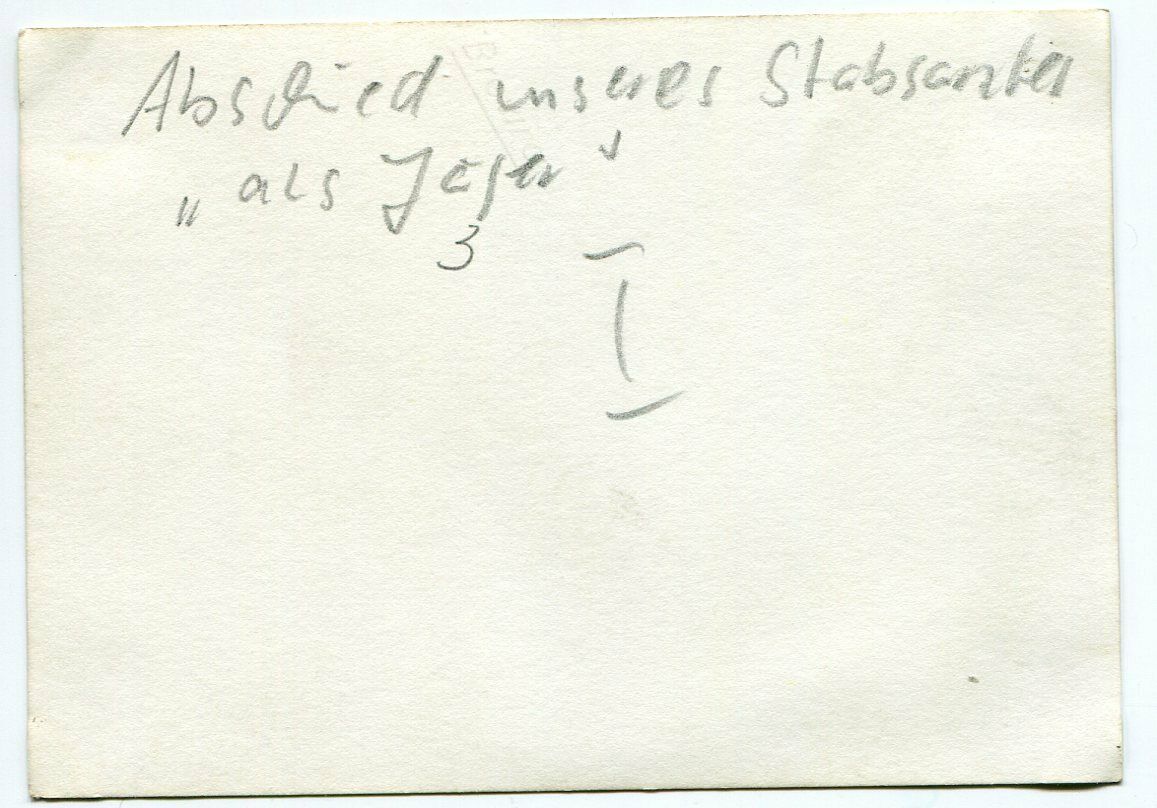 Abschied unseres Stabsarztes
„als Jäger"
3
I